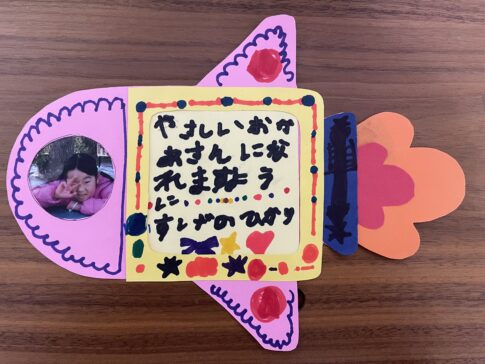 やさしいおか
あさんにな
れますよう
に
すしざのひかり